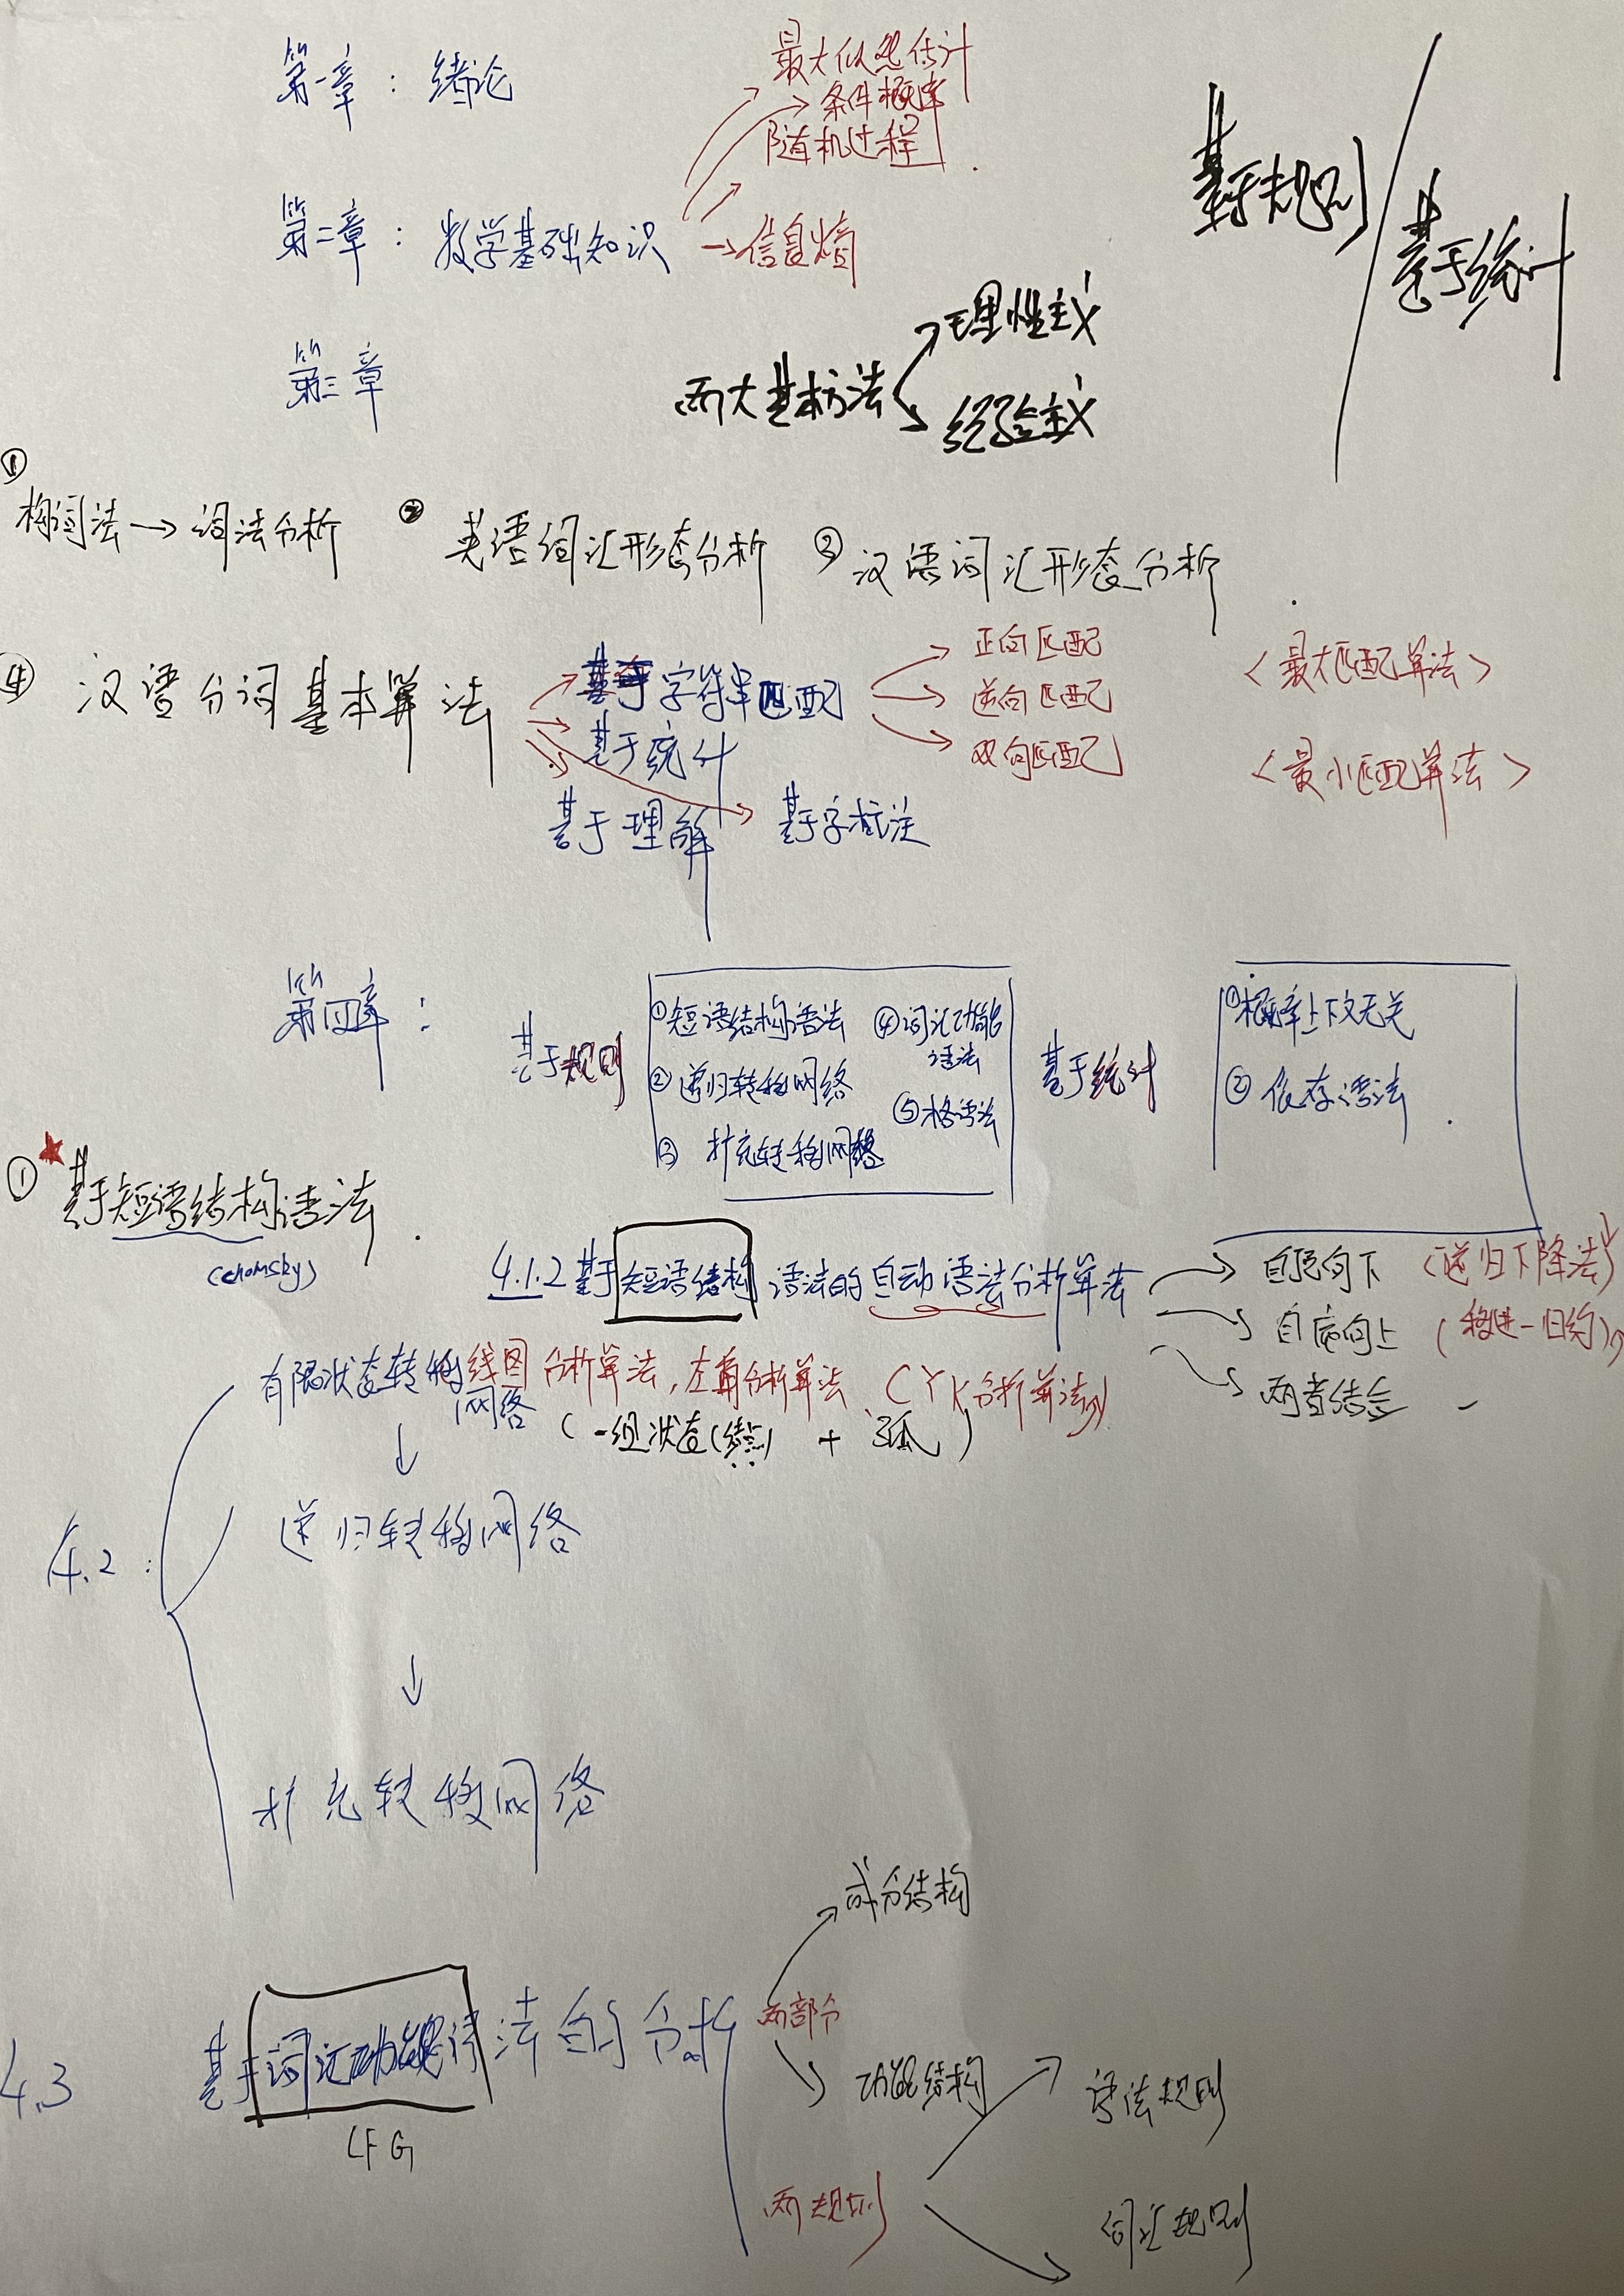 最大似然估计
第一章：绪论
条件概率
随机过程
基于规则
基于统计
第二章：数学基础知识 →信息熵
理性主义
第三章
两大基本方法
经验主义
①
构词法→词法分析 ② 英语词汇形态分析 ③ 汉语词汇形态分析
④ 汉语分词基本算法
基于字符串匹配
正向匹配
逆向匹配
双向匹配
<最大匹配算法>
<最小匹配算法>
基于统计
基于理解
基于字标注
第四章：
基于规则
①短语结构语法
②递归转移网络
③ 扩充转移网络
④词汇功能语法
⑤格语法
基于统计
①概率上下文无关
② 依存语法
① 基于短语结构语法
(chomsky)
4.1.2基于短语结构语法的自动语法分析算法
自顶向下 (递归下降法)
自底向上 (移进-归约)
两者结合
线图分析算法,左角分析算法 (CYK分析算法)
有限状态转移网络
(一组状态(结点) + 弧)
4.2:
递归转移网络
扩充转移网络
4.3 基于词汇功能语法的分析
LFG
两部分
成分结构
功能结构
两规则
语法规则
词汇规则